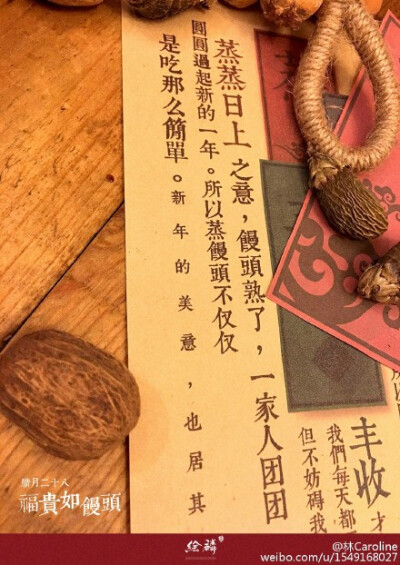 丰收
我們每天都
但不妨碍我
蒸蒸日上之意，饅頭熟了，一家人团团
圓圓過起新的一年。所以蒸饅頭不仅仅
是吃那么簡單。新年的美意，也居其
腊月二十八
福貴如饅頭
@林Caroline
weibo.com/u/1549168027